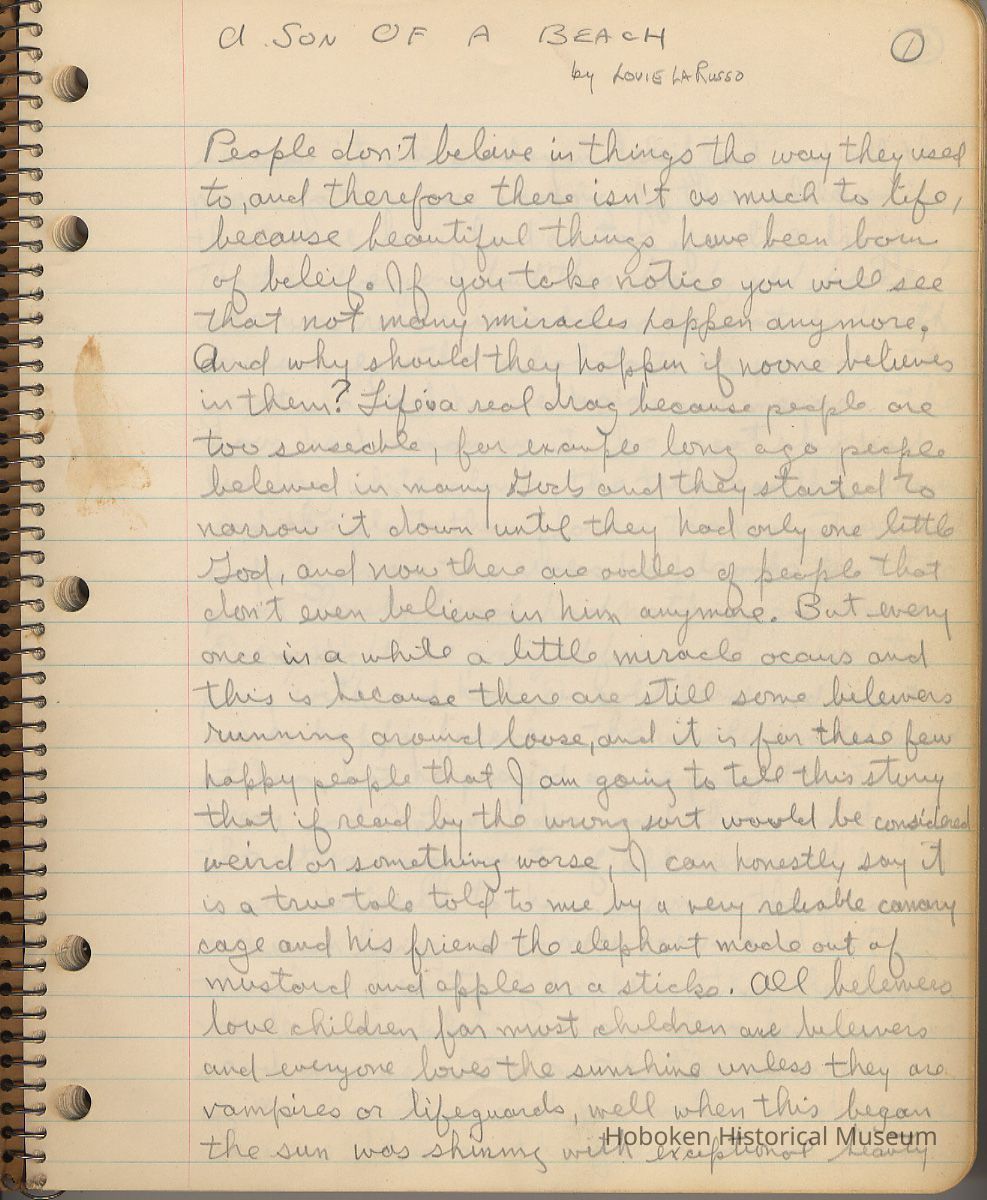 A SON OF A BEACH
1
by LOUIE LARUSSO
People don't beleive in things the way they used
to, and therefore there isn't as much to life,
because beautiful things have been born
of beleif. If you take notice you will see
that not many miracles happen anymore.
And why should they happen if noone believes
in them? Life is a real drag because people are
too senseable, for example long ago people
beleived in many Gods and they started to
narrow it down until they had only one little
God, and now there are oodles of people that
don't even believe in him anymore. But every
once in a while a little miracle occurs and
this is because there are still some beleivers
running around loose, and it is for these few
happy people that I am going to tell this story
that if read by the wrong sort would be considered
weird or something worse, I can honestly say it
is a true tale told to me by a very reliable canary
cage and his friend the elephant made out of
mustard and apples on a sticks. All beleivers
love children for most children are beleivers
and everyone loves the sunshine unless they are
vampires or lifeguards, well when this began
the sun was shining with exceptional beauty
Hoboken Historical Museum